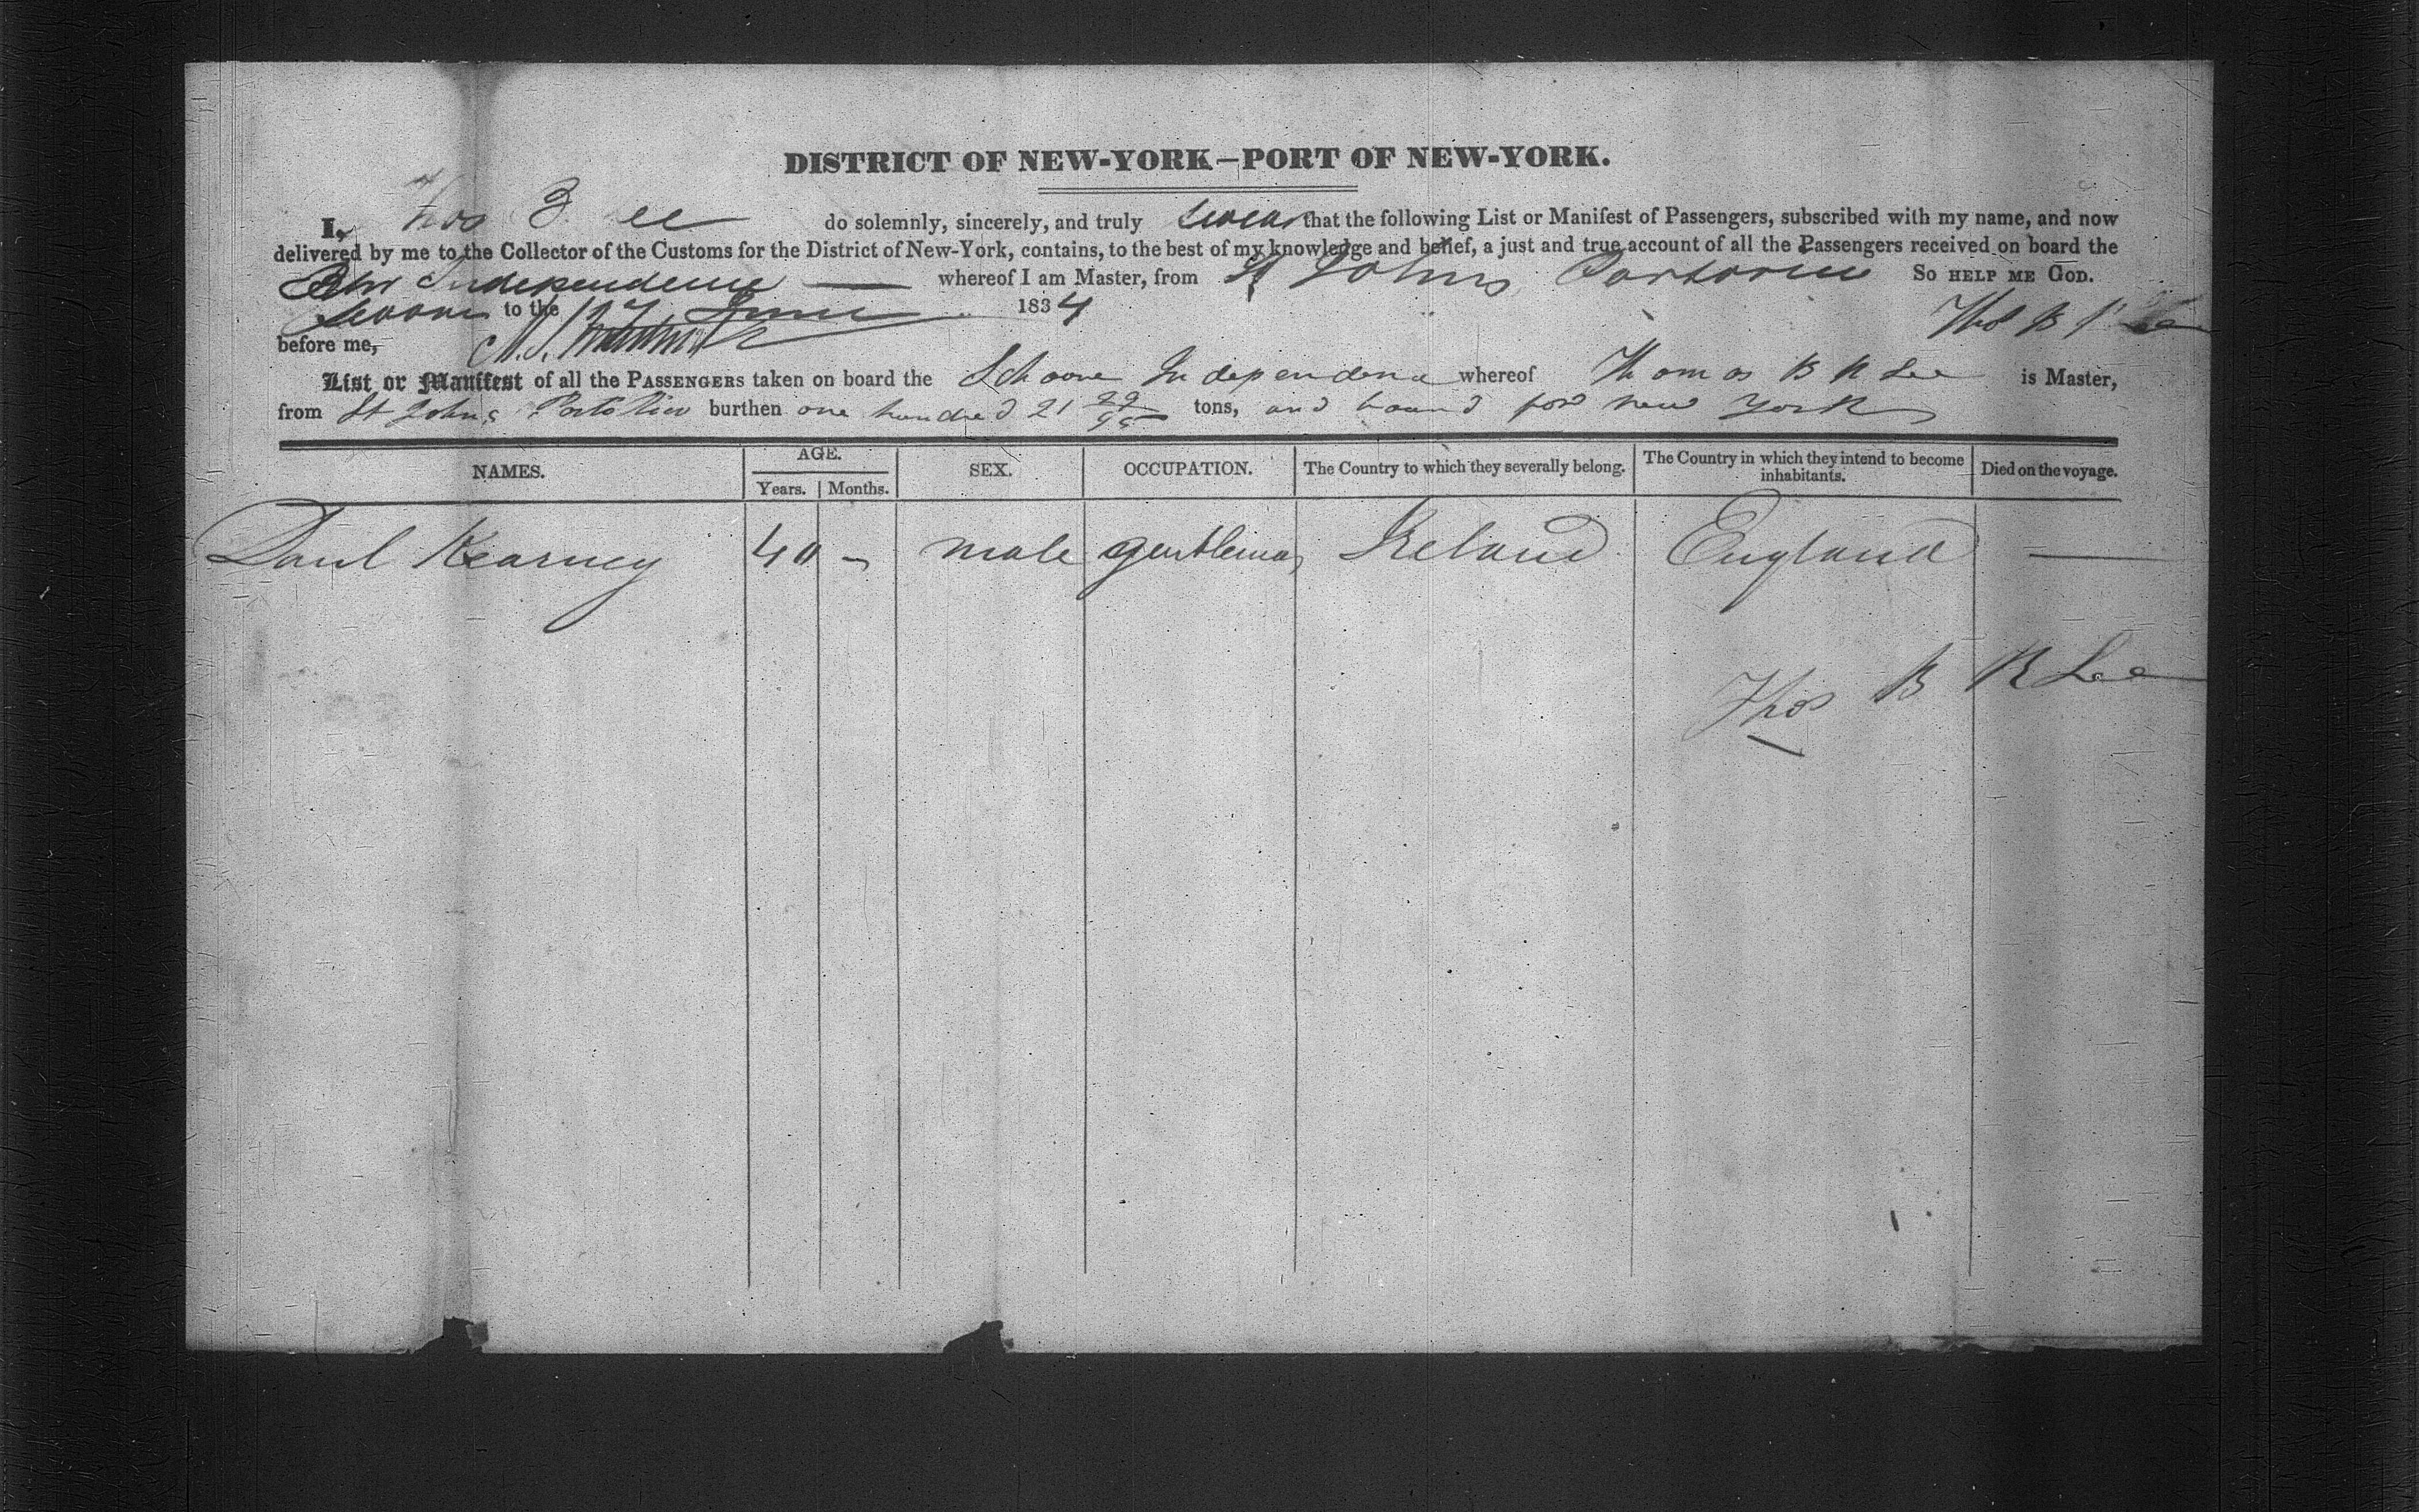 DISTRICT OF NEW-YORK—PORT OF NEW-YORK.
I, Thos B Lee do solemnly, sincerely, and truly swear that the following List or Manifest of Passengers, subscribed with my name, and now
delivered by me to the Collector of the Customs for the District of New-York, contains, to the best of my knowledge and belief, a just and true account of all the Passengers received on board the
Schr Independence whereof I am Master, from St Johns Portorico So HELP ME GOD.
Sworn to the 17 June 1834
Thos B R Lee
before me,
List or Manifest of all the PASSENGERS taken on board the Schoone Independence whereof Thomas B R Lee is Master,
from St Johns Porto Rico burthen one hundred 21 tons, and bound for new York
NAMES. AGE. Years. Months. SEX. OCCUPATION. The Country to which they severally belong. The Country in which they intend to become inhabitants. Died on the voyage.
Kearney 40 - male gentleman Ireland England —
Thos B R Lee